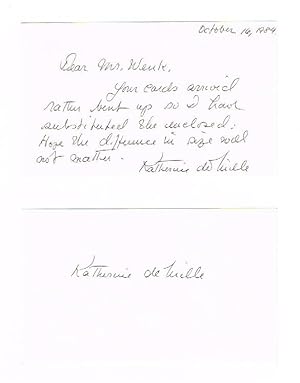 October 16, 1984
Dear Mr. Wenk,
Your cards arrived
rather bent up so I have
substituted the enclosed.
Hope the difference in size will
not matter.
Katherine de Mille
Katherine de Mille